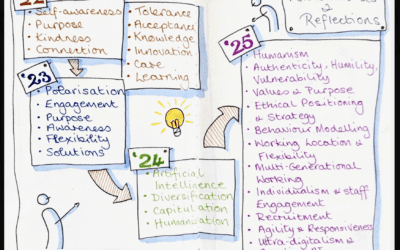 '22
Self-awareness
Purpose
Kindness
Connection
Tolerance
Acceptance
Knowledge
Innovation
Care
Learning
'23
Polarisation
Engagement
Purpose
Awareness
Flexibility
Solutions
'24
Artificial
Intelligence
Diversification
Capitulation
Humanisation
&
Reflections
'25
Humanism
Authenticity, Humility,
Vulnerability
Values & Purpose
Ethical Positioning
& Strategy
Behaviour Modelling
Working Location &
Flexibility
Multi-Generational
Working
Individualism & Staff
Engagement
Recruitment
Agility & Responsiveness
Ultra-digitalism &